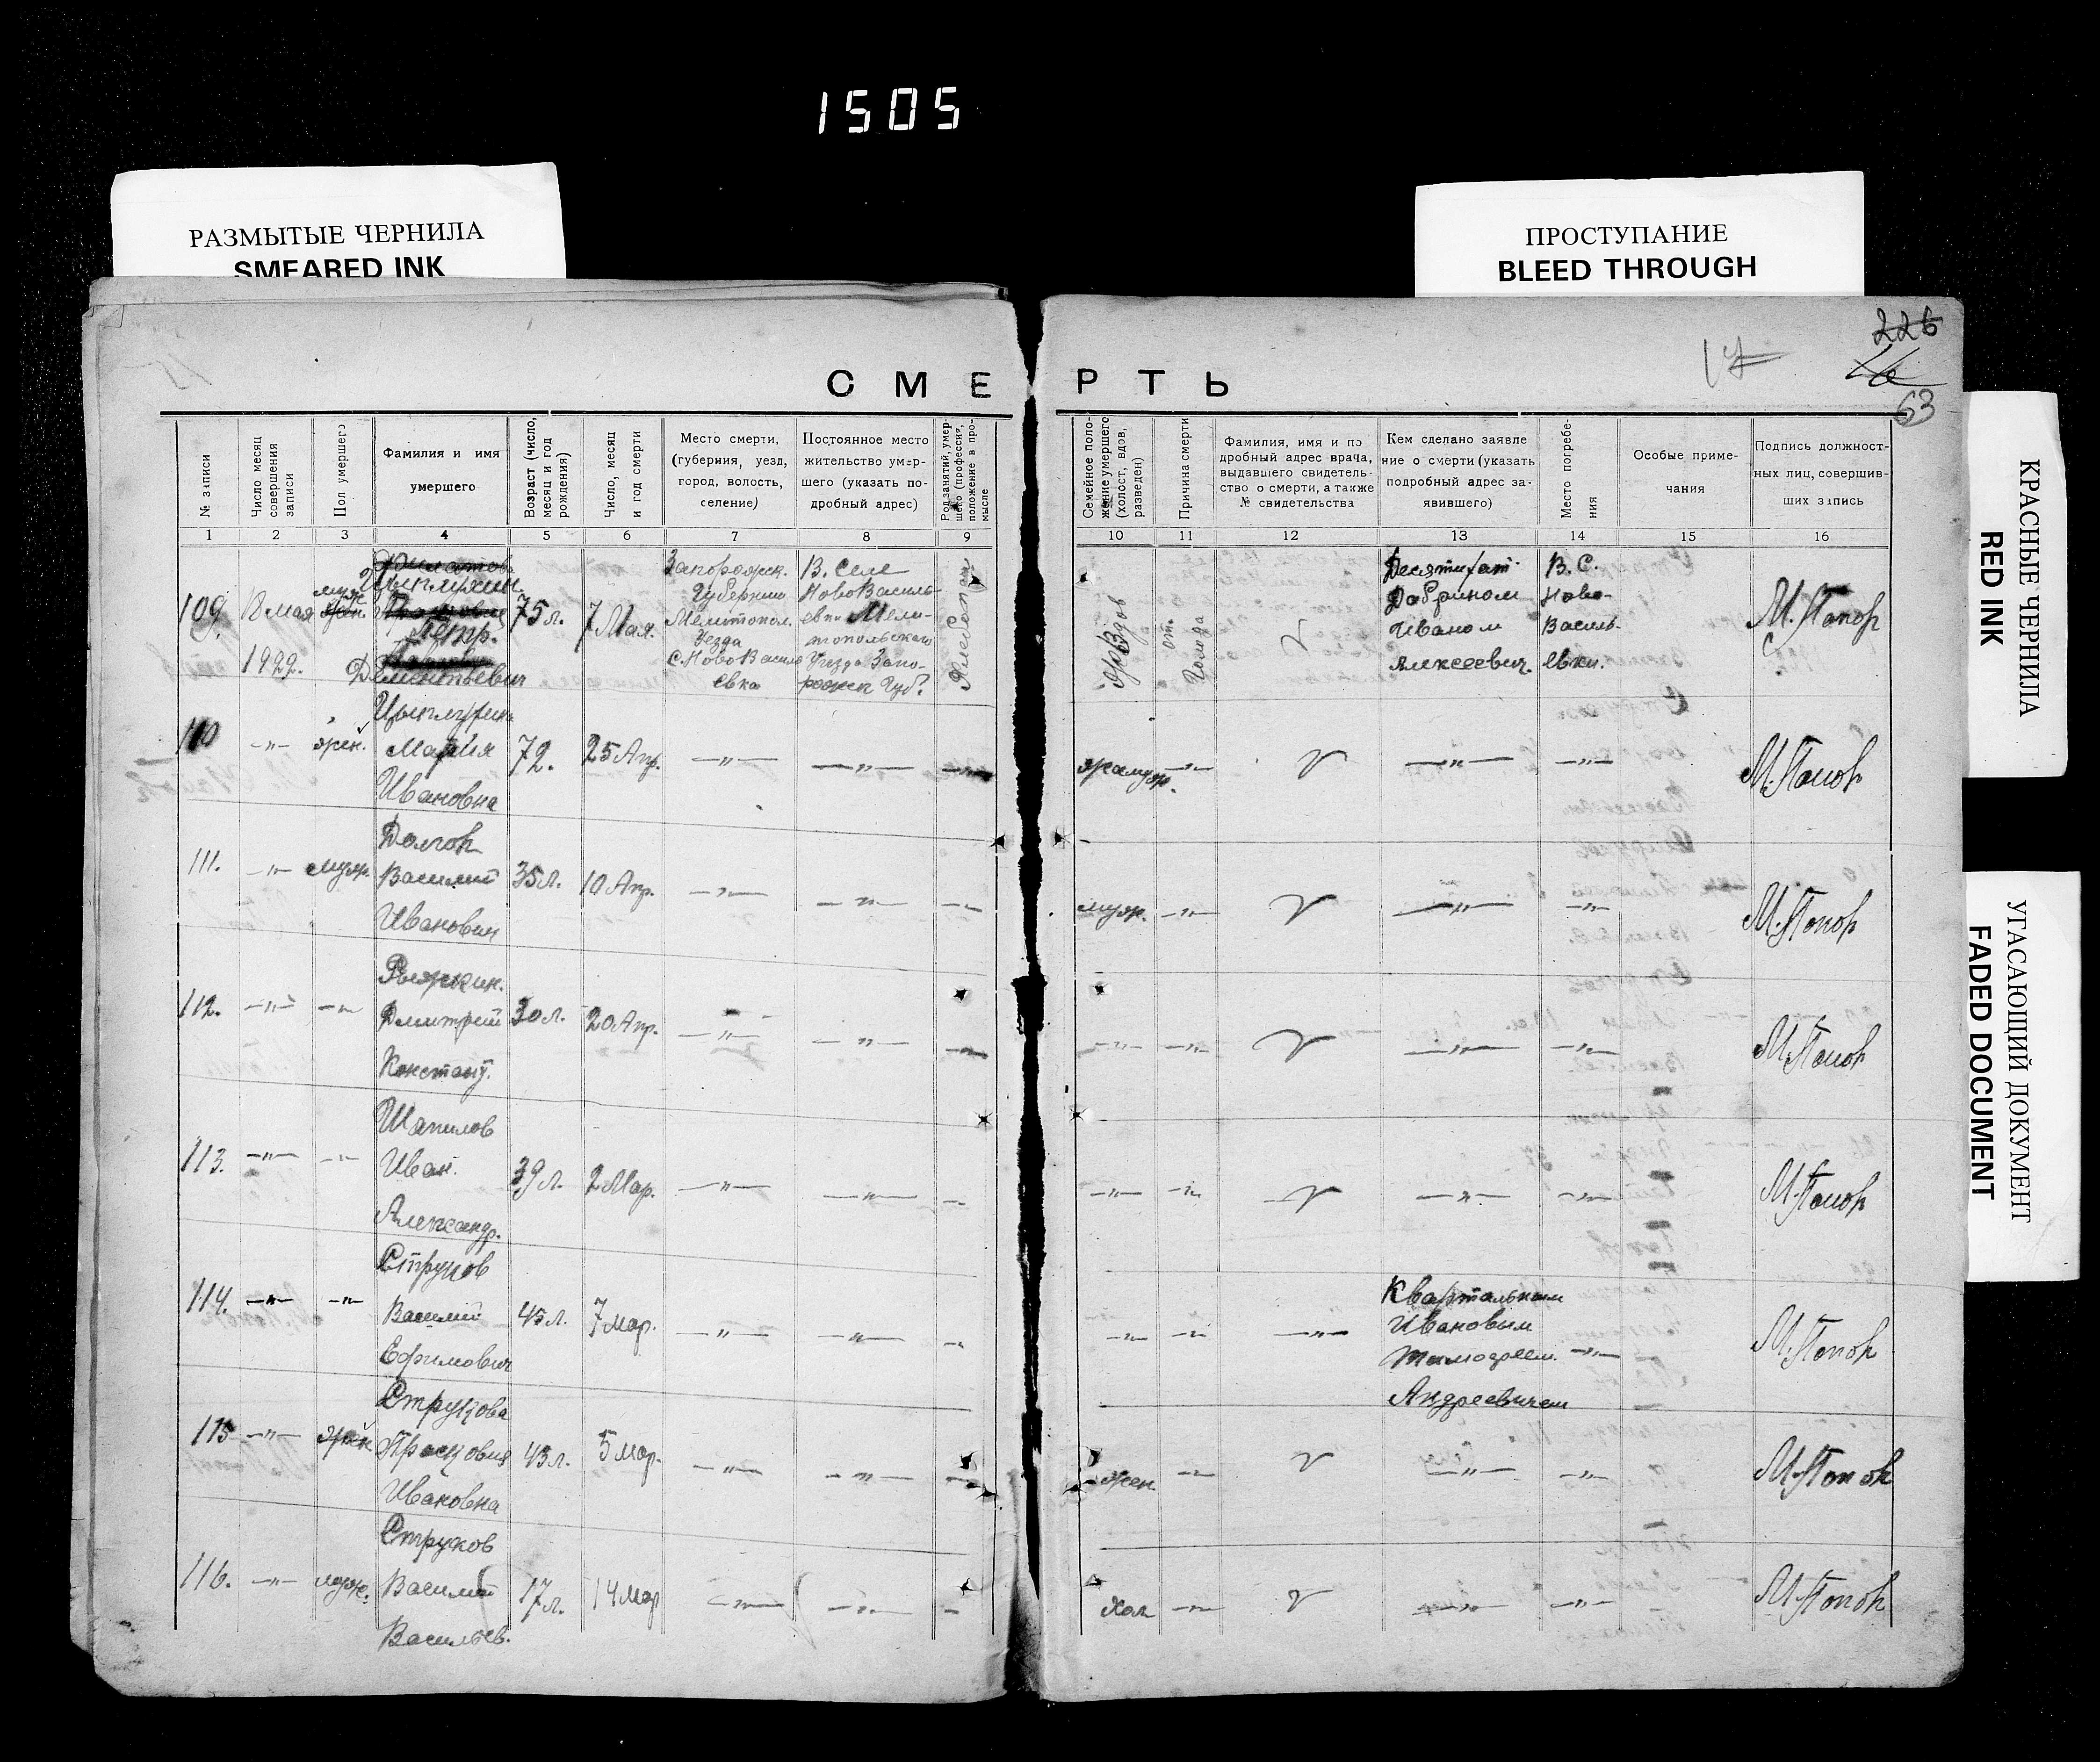 1505
РАЗМЫТЫЕ ЧЕРНИЛА
SMEARED INK
ПРОСТУПАНИЕ
BLEED THROUGH
КРАСНЫЕ ЧЕРНИЛА
RED INK
УГАСАЮЩИЙ ДОКУМЕНТ
FADED DOCUMENT
226
17
63
СМЕРТЬ
№ записи
Число месяц совершения записи
Пол умершего
Фамилия и имя умершего
Возраст (число, месяц и год рождения)
Число, месяц и год смерти
Место смерти, (губерния, уезд, город, волость, селение)
Постоянное место жительство умершего (указать подробный адрес)
Род занятий, умершего (профессия, положение в промысле
Семейное положение умершего (холост, вдов, разведен)
Причина смерти
Фамилия, имя и по дробный адрес врача, выдавшего свидетельство о смерти, а также № свидетельства
Кем сделано заявление о смерти (указать подробный адрес заявившего)
Место погребения
Особые примечания
Подпись должностных лиц, совершивших запись
1 2 3 4 5 6 7 8 9 10 11 12 13 14 15 16
109. 18 мая 1922. муж. Петр. Дементьевич 75 л. 7 Мая.
Запорожск.
Губернии
Мелитопол.
Уезда
С. Ново Василь
евка
В. Селе
Ново Василь-
евки Мели-
топольского
Уезда Запо-
рожск Губ.
Хлебопаш
Вдов
от
Голода
Десятихат.
Добрином
Иваном
Алексеевич.
В. С.
Ново-
Василь-
евки.
М. Попов
110 -"- жен. Мария Ивановна 72. 25 Апр. -"- -"- -"- замуж. -"- -"- -"- М. Попов
111. -"- муж. Долгов Василий Иванович 35 л. 10 Апр. -"- -"- -"- муж. -"- -"- -"- М. Попов
112. -"- -"- Ряжкин. Дмитрий Констант. 30 л. 20 Апр. -"- -"- -"- -"- -"- -"- -"- М. Попов
113. -"- -"- Шапилов Иван. Александр. 39 л. 2 Мар. -"- -"- - -"- -"- -"- -"- М. Попов
114. -"- -"- Струков Василий Ефимович 45 л. 7 Мар. -"- -"- -"- -"- -"- -"-
Квартальным
Ивановым
Тимофеем. -"-
Андреевичем
М. Попов
115 -"- жен Струкова Прасковия Ивановна 43 л. 5 Мар. -"- -"- -"- жен -"- -"- -"- М. Попов
116. -"- муж. Струков Василий Васильев. 17 л. 14 Мар -"- -"- - Хол -"- -"- -"- М. Попов